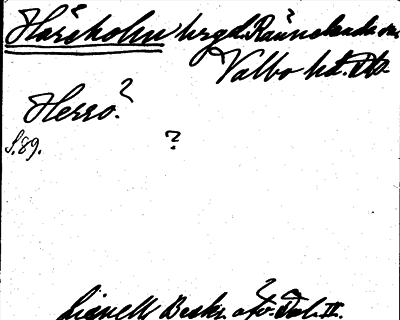 Harsholm bygd. Rännelanda sn.
Valbo hd. Db.
Herrö?
S. 89.
?
Lignell Beskr. öfv. Dal. II.